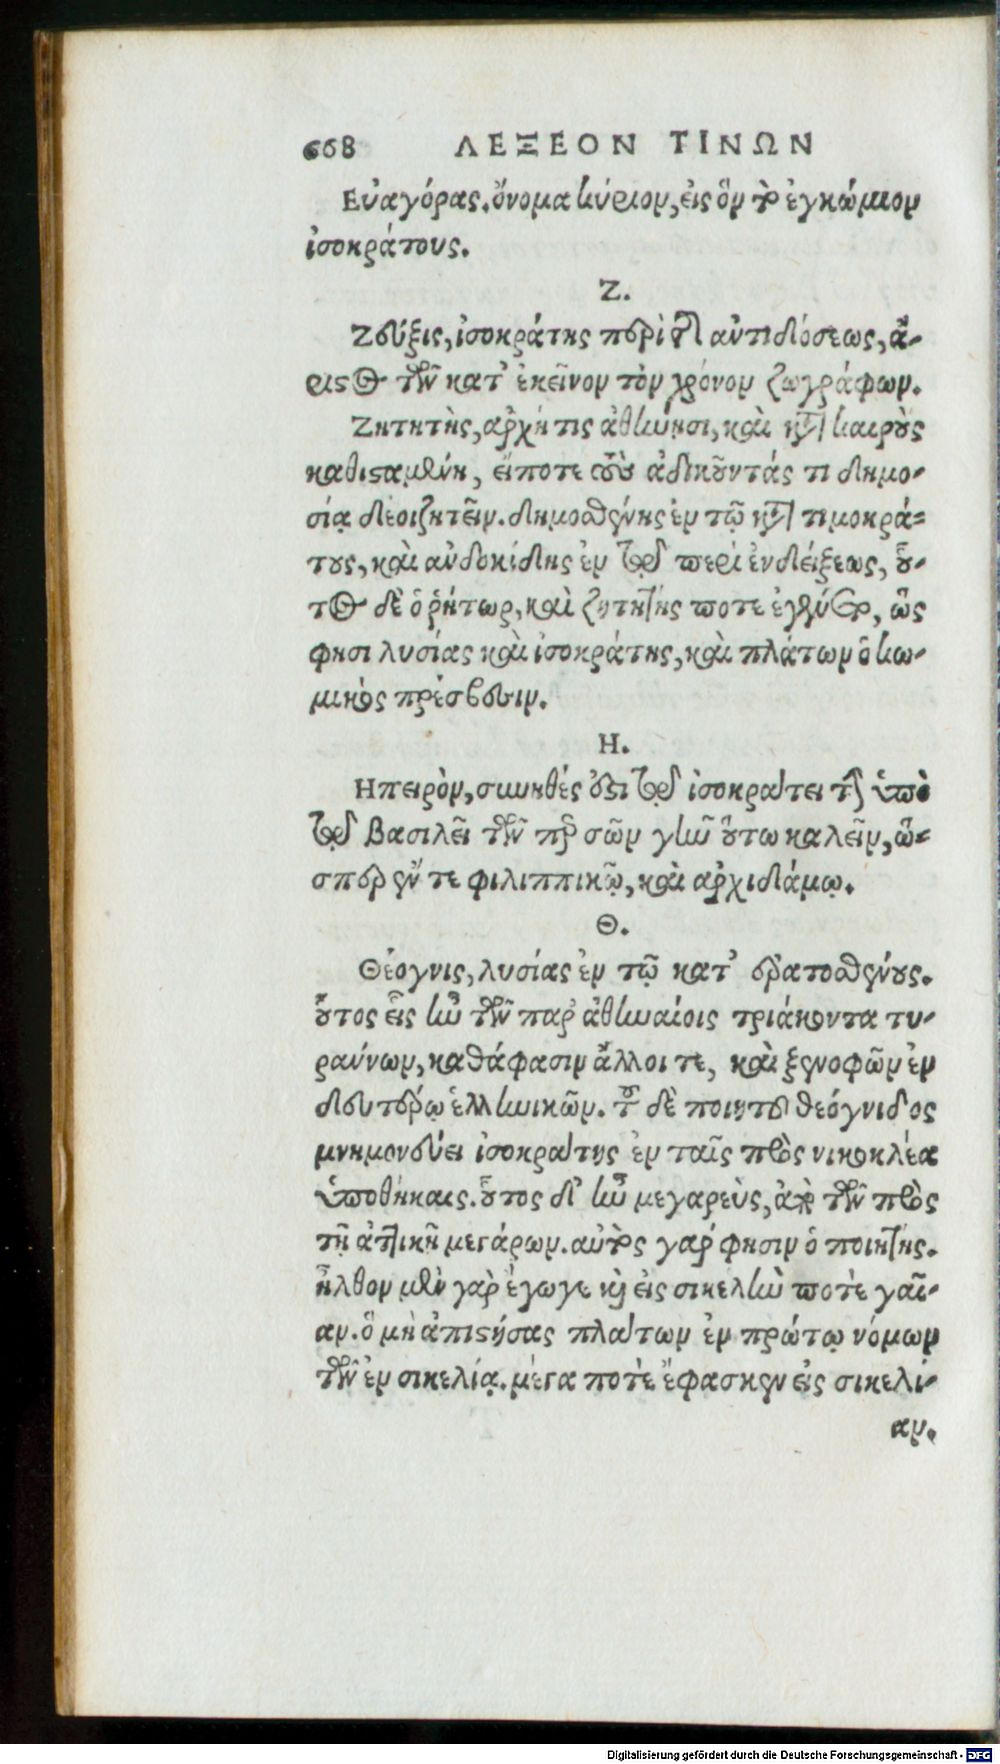 668 ΛΕΞΕΟΝ ΤΙΝΩΝ
Εὐαγόρας. ὄνομα κύριον, εἰς ὃν τὸ ἐγκώμιον
ἰσοκράτους.
Ζ.
Ζεύξις, ἰσοκράτης περὶ τῆς ἀντιδόσεως, ἄ-
ριστος τῶν κατ' ἐκεῖνον τὸν χρόνον ζωγράφων.
Ζητητὴς, ἀρχή τις ἀθήνησι, καὶ κατὰ καιροὺς
καθισταμένη, εἴποτε τοὺς ἀδικοῦντάς τι δημο-
σίᾳ δέοι ζητεῖν. δημοσθένης ἐν τῷ κατὰ τιμοκρά-
τους, καὶ ἀνδοκίδης ἐν τῷ περὶ ἐνδείξεως, οὗ-
τος δὲ ὁ ῥήτωρ, καὶ ζητητής ποτε ἐγένετο, ὥς
φησι λυσίας καὶ ἰσοκράτης, καὶ πλάτων ὁ κω-
μικὸς πρέσβεσιν.
Η.
Ηπειρὸν, σύνηθές ἐστι τῷ ἰσοκράτει τὴν ὑπὸ
τῷ βασιλεῖ τῶν περσῶν γῆν οὕτω καλεῖν, ὥ-
σπερ ἔν τε φιλιππικῷ, καὶ ἀρχιδάμῳ.
Θ.
Θέογνις, λυσίας ἐν τῷ κατ' ερατοσθένους.
οὗτος εἷς ἦν τῶν παρ' ἀθηναίοις τριάκοντα τυ-
ράννων, καθάφασιν ἄλλοι τε, καὶ ξενοφῶν ἐν
δευτέρῳ ἑλληνικῶν. τοῦ δὲ ποιητοῦ θεόγνιδος
μνημονεύει ἰσοκράτης ἐν ταῖς πρὸς νικοκλέα
ὑποθήκαις. οὗτος δ' ἦν μεγαρεὺς, ἀπὸ τῶν πρὸς
τῇ ἀττικῇ μεγάρων. αὐτὸς γάρ φησιν ὁ ποιητής.
ἦλθον μὲν γὰρ ἔγωγε καὶ εἰς σικελὴν ποτὲ γαῖ-
αν. ὃ μὴ ἀπιστήσας πλάτων ἐν πρώτῳ νόμων
τῶν ἐν σικελίᾳ. μέγα ποτὲ ἔφασκεν εἰς σικελί-
αν.
Digitalisierung gefördert durch die Deutsche Forschungsgemeinschaft - DFG